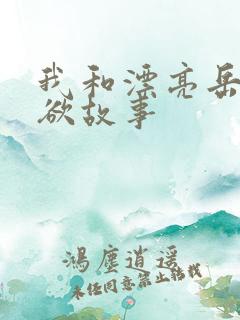 我和漂亮岳
欲故事
鸿尘逍遥
未经同意禁止转载